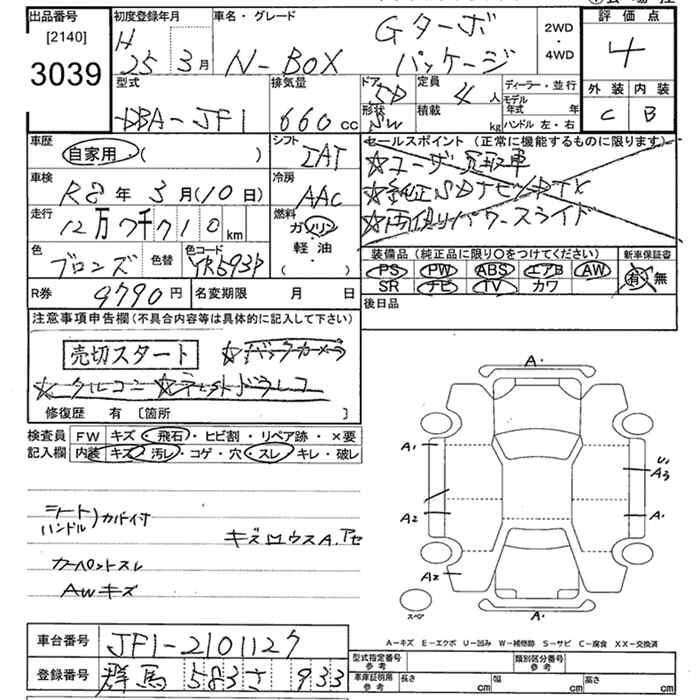 出品番号 初度登録年月 車名・グレード 評価点
[2140]
3039
H 25 年 3 月 N-BOX Gターボ パッケージ 2WD・4WD 4
型式 排気量 ドア 定員 ディーラー・並行 外装 内装
DBA-JF1 660 cc 5D 4人 モデル年式 年 C B
形状 積載 kg ハンドル 左・右
SW
車歴 シフト セールスポイント(正常に機能するものに限ります)
自家用・( ) IAT ☆ユーザー買取車
車検 冷房 ☆純正SDナビ
R8年 3月(10日) AAC ☆両側パワースライド
走行 燃料
12万7千710km ガソリン
軽・油
( )
色 色替 色コード 装備品(純正品に限り〇をつけてください) 新車保証書
ブロンズ YR593P PS PW ABS エアB AW 有・無
SR ナビ TV カワ
R券 9790円 名変期限 月 日 後日品
注意事項申告欄(不具合内容等は具体的に記入して下さい)
売切スタート ☆バックカメラ
☆クルコン ☆
修復歴 有 [箇所 ]
検査員 FW キズ・飛石・ヒビ割・リペア跡・×要
記入欄 内装 キズ・汚レ・コゲ・穴・スレ・キレ・破レ
シート
ハンドル )カバー付
キズ A.
カーペットスレ
AWキズ
A・
A1 U1
A3
A2 A・
A2
スペア A・
A-キズ E-エクボ U-凹み W-補修跡 S-サビ C-腐食 XX-交換済
車台番号 JF1-2101127
登録番号 群馬 583 さ 933
型式指定番号 参考 類別区分番号 参考
車庫証明用 参考 長さ cm 幅 cm 高さ cm